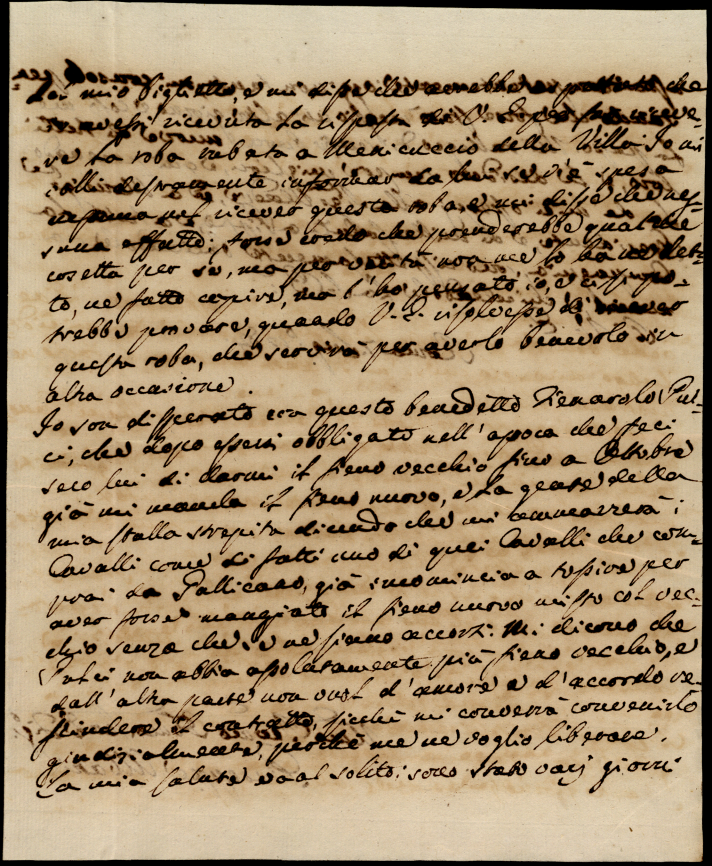 mio biglietto, e mi disse che avrebbe aspettato che
avessi ricevuta la risposta di V. E. per far riceve-
re la roba rubata a Menicuccio della Villa. Io mi
destramente informar da lui se v'è spesa
nessuna nel ricever questa roba, e mi disse che nes-
suna affatto; forse credo che prenderebbe qualche
cosetta per se, ma per verità non me lo ha ne det-
to, ne fatto capire, ma l'ho pensato io, e ci si po-
trebbe provare, quando V. E. risolvesse di
questa roba, che servirà per averlo benevolo in
altra occasione.
Io son disperato con questo benedetto Fienarolo Pul-
ci, che dopo essersi obbligato nell'apoca che feci
seco lui di darmi il fieno vecchio fino a Ottobre
già mi manda il fieno nuovo, e la gente della
mia stalla strepita dicendo che mi ammazzerà i
Cavalli come di fatti uno di quei Cavalli che com-
prai da Pallicano, già incomincia a tossire per
aver forse mangiato il fieno nuovo misto col vec-
chio senza che se ne siano accorti. Mi dicono che
Pulci non abbia assolutamente più fieno vecchio, e
dall'altra parte non vuol d'amore e d'accordo re-
scindere il contratto, sicchè mi converrà convenirlo
giudizialmente, perchè me ne voglio liberare.
La mia salute va al solito; sono stato varj giorni